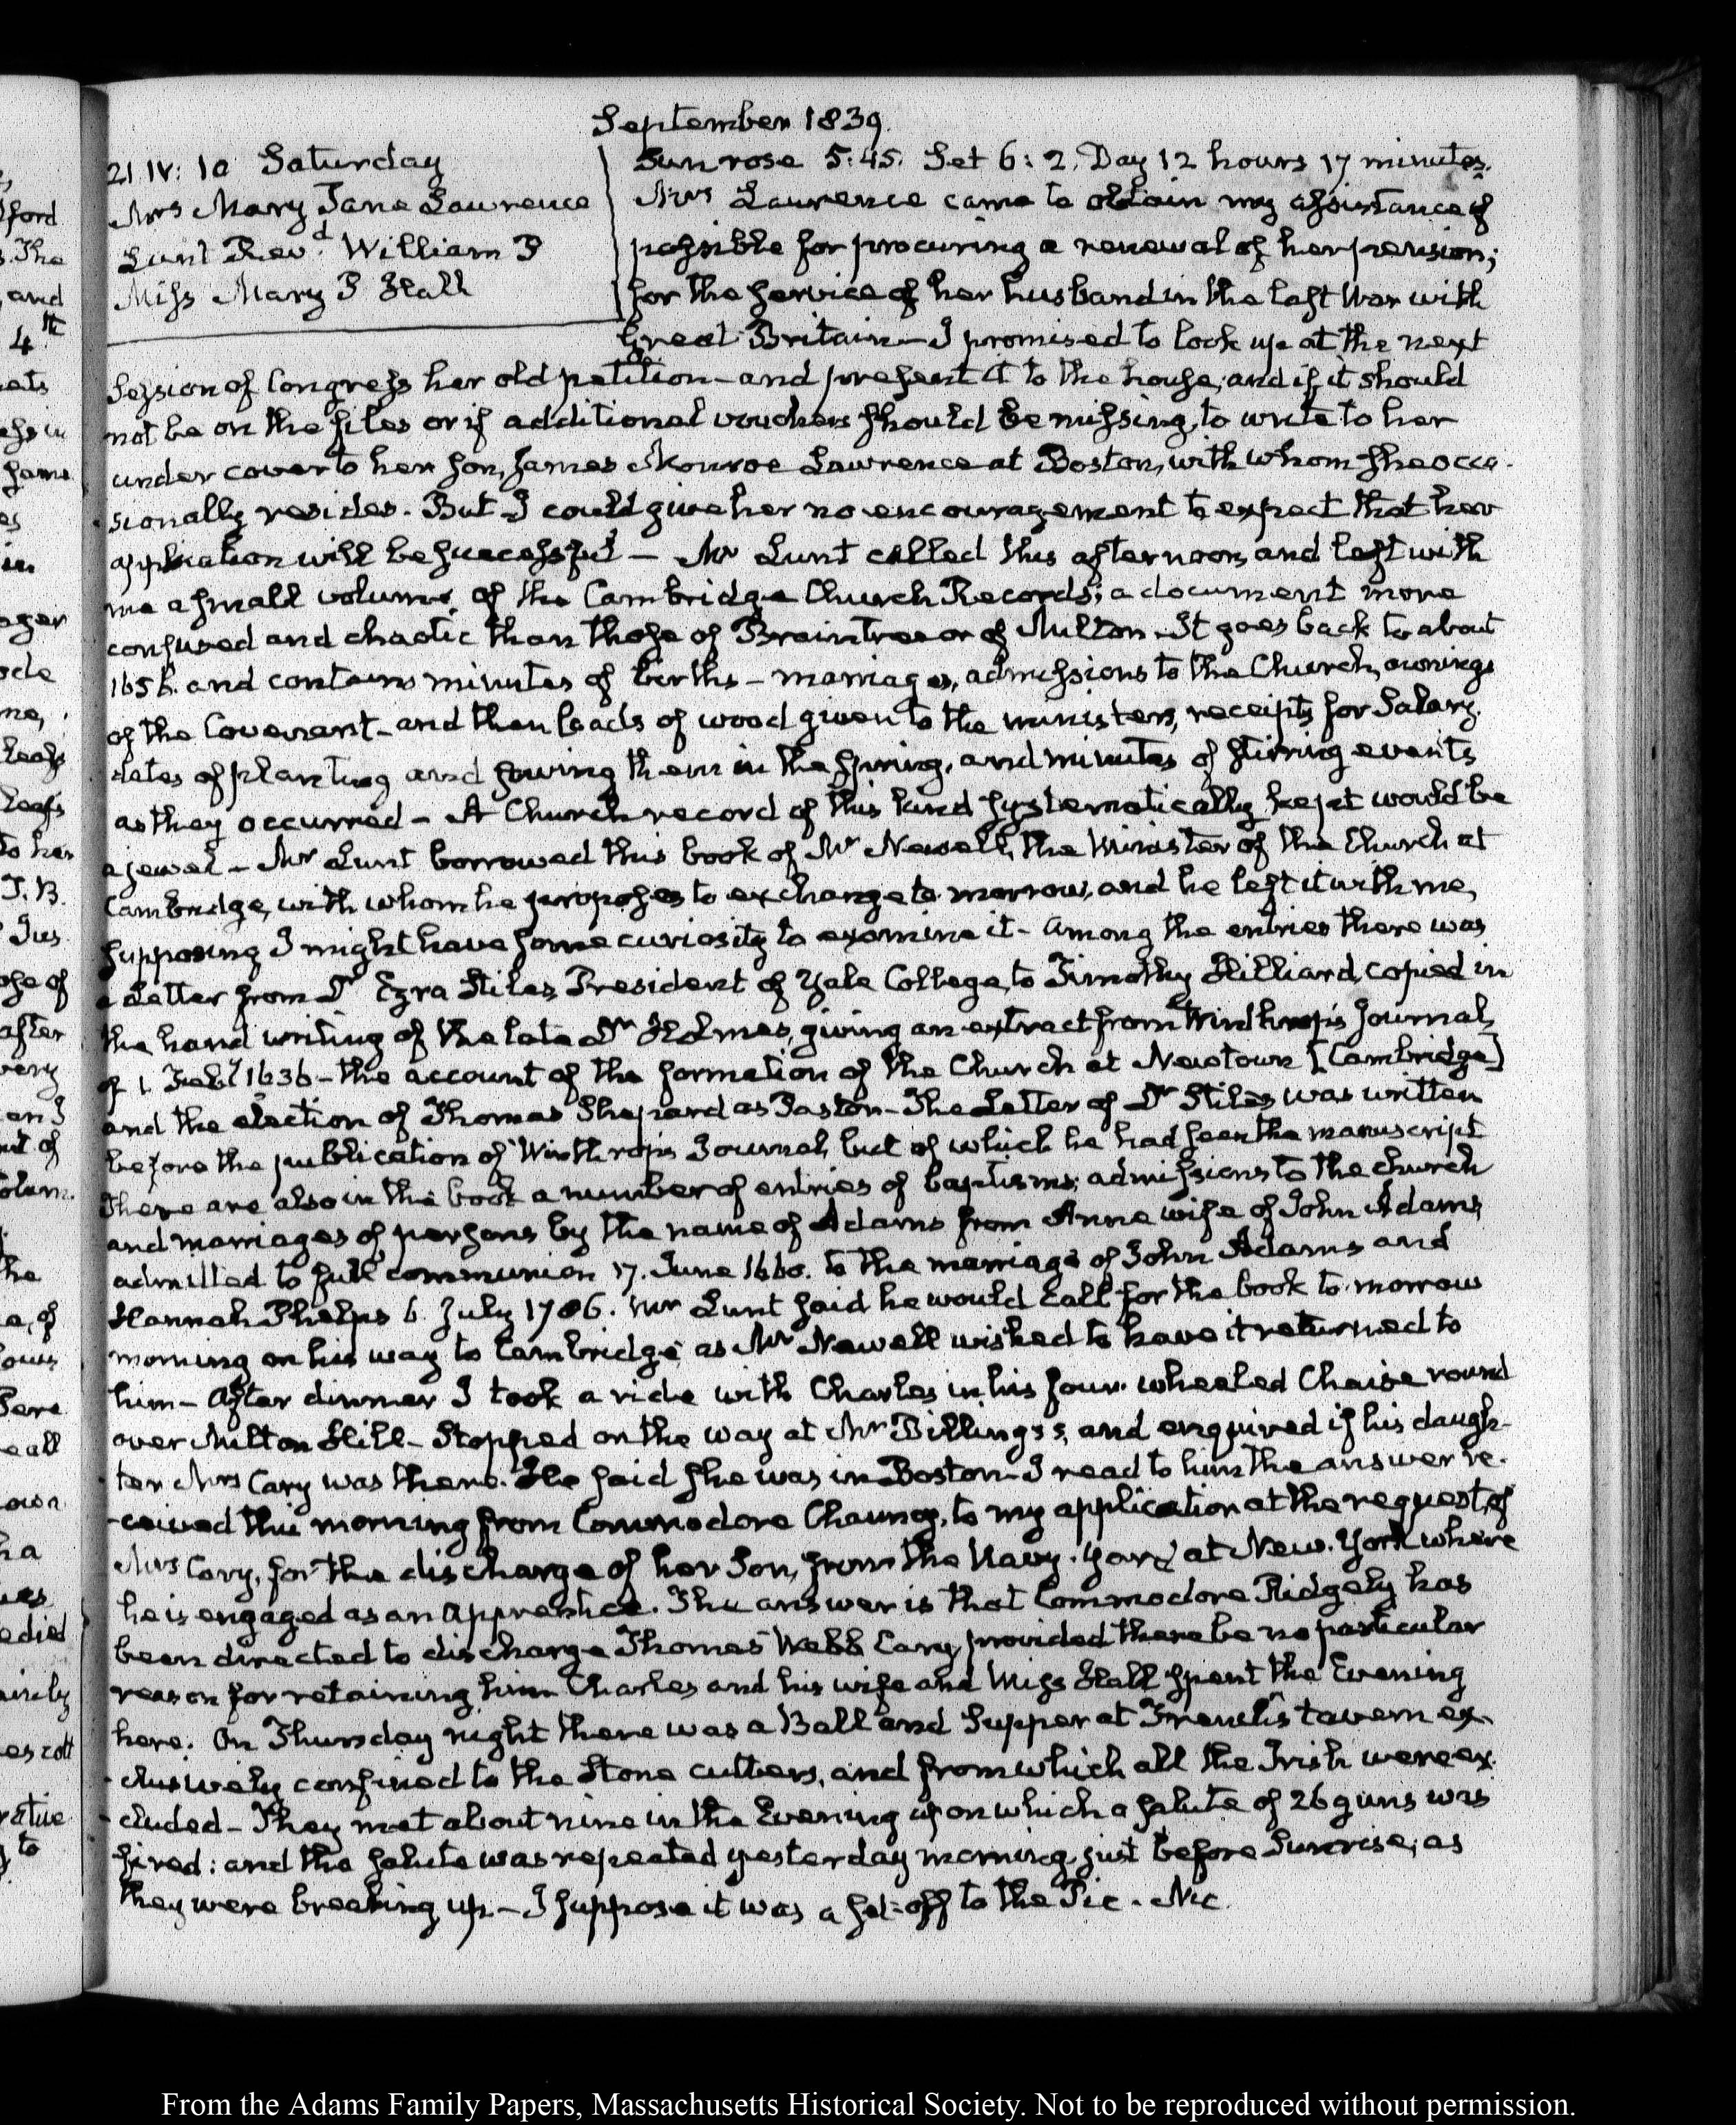 September 1839.
21. IV: 10 Saturday
Mrs Mary Jane Lawrence
Lunt Revd. William P
Miss Mary P Hall
Sun rose 5:45. Set 6:2. Day 12 hours 17 minutes.
Mrs Lawrence came to obtain my assistance if
possible for procuring a renewal of her pension;
for the service of her husband in the last War with
Great Britain — I promised to look up at the next
Session of Congress her old petition — and present it to the house; and if it should
not be on the files or if additional vouchers should be missing, to write to her
under cover to her son, James Monroe Lawrence at Boston, with whom she occa-
sionally resides. But I could give her no encouragement to expect that her
application will be successful — Mr Lunt called this afternoon, and left with
me a small volume, of the Cambridge Church Records; a document more
confused and chaotic than those of Braintree or of Milton. It goes back to about
1656. and contains minutes of births — marriages, admissions to the Church, ownings
of the Covenant — and then loads of wood given to the ministers, receipts for Salary.
dates of planting and sowing them in the spring, and minutes of stirring events
as they occurred — A Church record of this kind systematically kept would be
a jewel — Mr Lunt borrowed this book of Mr Newell, the Minister of the Church at
Cambridge, with whom he proposes to exchange to-morrow, and he left it with me,
supposing I might have some curiosity to examine it — Among the entries there was
a Letter from Dr Ezra Stiles, President of Yale College, to Timothy Hilliard, copied in
the hand writing of the late Dr Holmes, giving an extract from Winthrop's Journal,
of 1. Feby 1636 — the account of the formation of the Church at Newtown [Cambridge]
and the election of Thomas Shepard as Pastor — The Letter of Dr Stiles was written
before the publication of Winthrop's Journal, but of which he had seen the manuscript
There are also in the book a number of entries of baptisms; admissions to the church
and marriages of persons by the name of Adams from Anne wife of John Adams,
admitted to full communion 17. June 1660. to the marriage of John Adams and
Hannah Phelps 6. July 1786. Mr Lunt said he would call for the book to-morrow
morning on his way to Cambridge as Mr Newell wished to have it returned to
him — After dinner I took a ride with Charles in his four wheeled Chaise round
over Milton Hill — Stopped on the way at Mr Billings's, and enquired if his daugh-
ter Mrs Cary was there. He said she was in Boston — I read to him the answer re-
-ceived this morning from Commodore Chauncy, to my application at the request, of
Mrs Cary, for the discharge of her Son, from the Navy-Yard at New-York where
he is engaged as an apprentice. The answer is that Commodore Ridgely has
been directed to discharge Thomas Webb Cary, provided there be no particular
reason for retaining him. Charles and his wife and Miss Hall spent the Evening
here. On Thursday night there was a Ball and Supper at French's tavern ex-
-clusively confined to the Stone cutters, and from which all the Irish were ex-
-cluded — They met about nine in the Evening upon which a salute of 26 guns was
fired: and the salute was repeated yesterday morning, just before Sunrise; as
they were breaking up. — I suppose it was a set-off to the Pic-Nic.
From the Adams Family Papers, Massachusetts Historical Society. Not to be reproduced without permission.